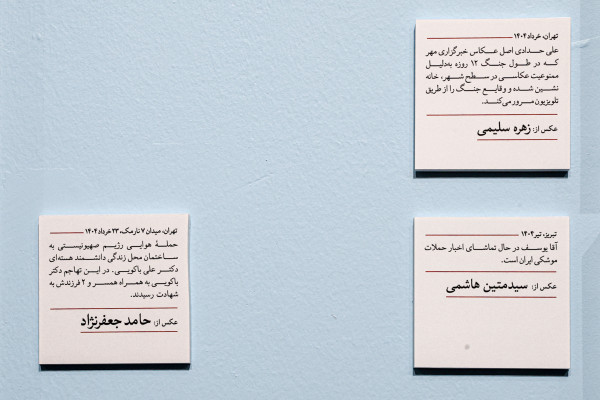 تهران، خرداد ۱۴۰۴
علی حــدادی اصل عــکاس خبرگزاری مهر
کــه در طــول جنــگ ۱۲ روزه به‌دلیــل
ممنوعیت عکاســی در ســطح شــهر، خانه
نشــین شــده و وقایــع جنــگ را از طریق
تلویزیون مــرور می‌کنــد.
عکس از: زهره سلیمی
تهران، میدان ۷ نارمک، ۲۳ خرداد ۱۴۰۴
حملــهٔ هوایی رژیــم صهیونیســتی به
ســاختمان محل زندگی دانشــمند هسته‌ای
دکتــر علی باکویــی. در ایــن تهاجم دکتر
باکویی به همــراه همســر و ۲ فرزندش به
شهادت رسیدند.
عکس از: حامد جعفرنژاد
تبریز، تیر ۱۴۰۴
آقا یوســف در حال تماشــای اخبار حملات
موشکی ایران است.
عکس از: سیدمتین هاشمی